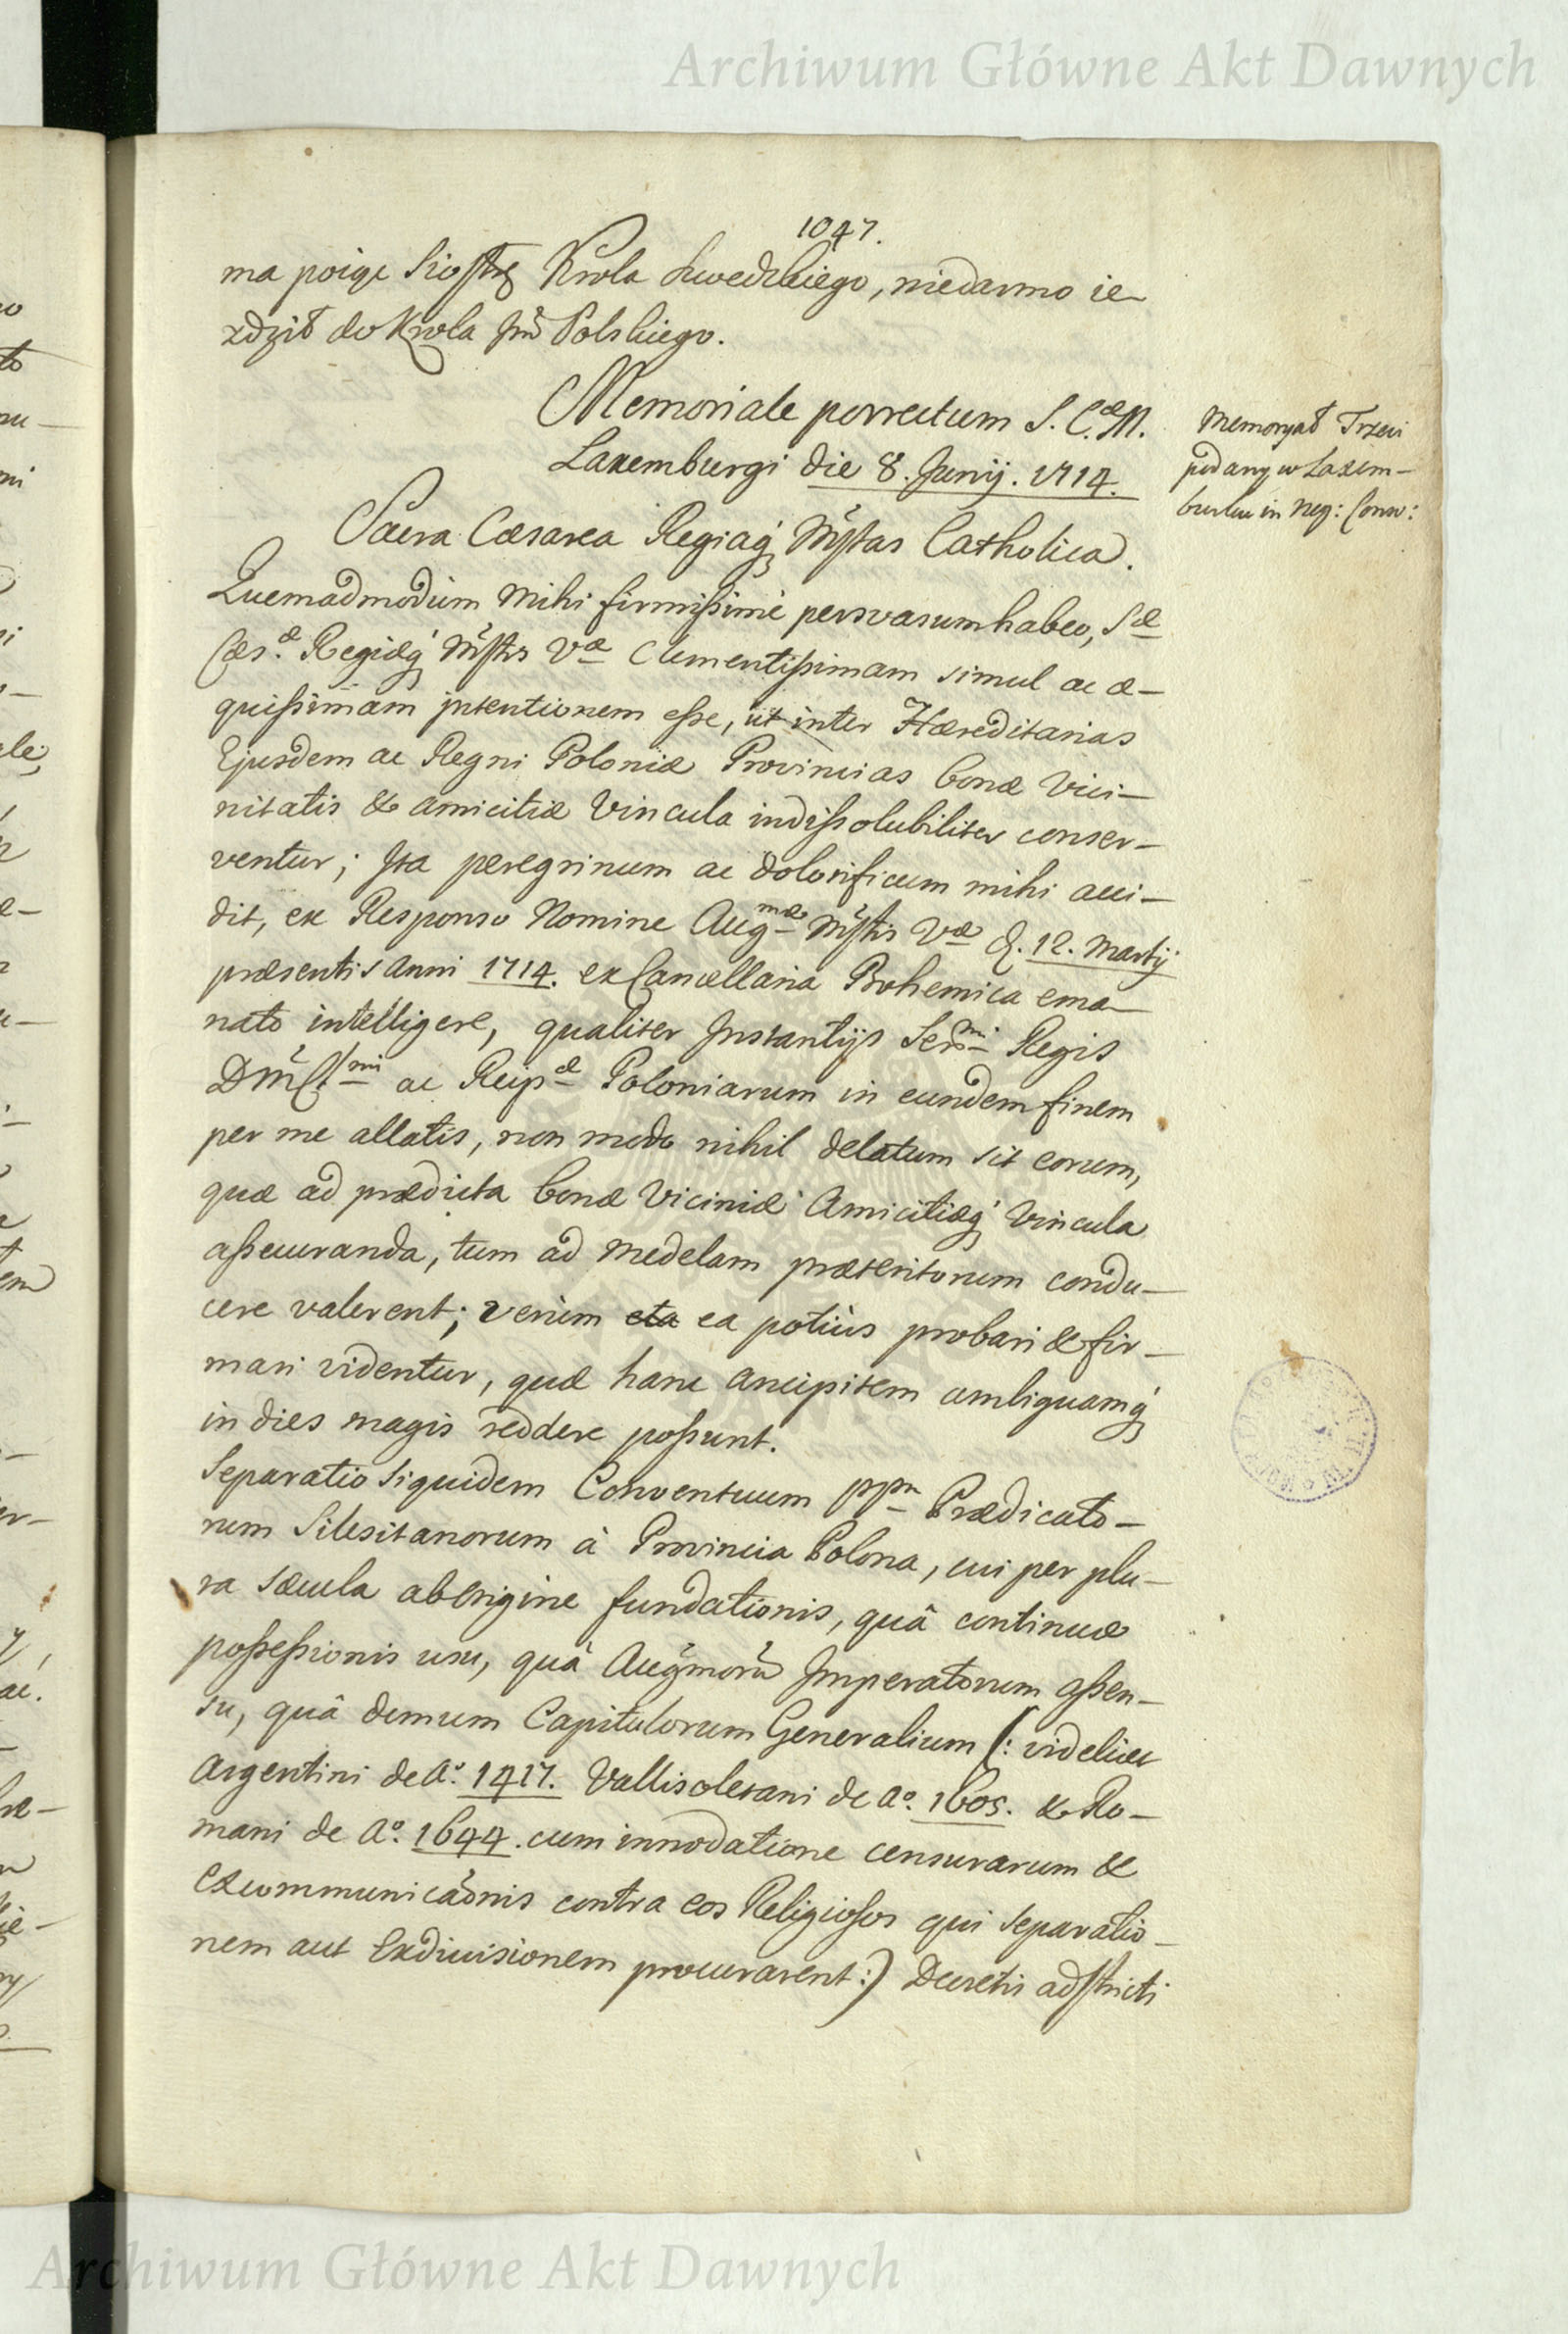 Archiwum Główne Akt Dawnych
1047.
ma poiąc Siostrę Krola Szwedzkiego, niedawno ie-
zdził do Krola Jm̃ Polskiego.
Memoriale porrectum S. C.æ M.
Laxemburgi die 8. Junij. 1714.
Memoryał Trzeci
podany w Laxem-
burku in neg: Conv:
Sacra Cæsarea Regiaq́ Mỹstas Catholica.
Quemadmodum Mihi firmissimè persvasum habeo, S.æ
Cæs.æ Regiæq́ Mỹstis V.æ Clementissimam simul ac æ-
quissimam intentionem esse, ut inter Hæreditarias
Ejusdem ac Regni Poloniæ Provincias bonæ Vici-
nitatis & amicitiæ Vincula indissolubiliter conser-
ventur; Ita peregrinum ac dolorificum mihi acci-
dit, ex Responso Nomine Aug.mæ Mỹstis V.æ d. 12. Martij
præsentis Anni 1714. ex Cancellaria Bohemica ema-
nato intelligere, qualiter Instantijs Ser.mi Regis
Dñi Cl.mi ac Reip.æ Poloniarum in eundem finem
per me allatis, non modo nihil delatum sit eorum,
quæ ad prædicta bonæ Viciniæ Amicitiæq́ Vincula
assecuranda, tum ad Medelam præteritorum condu-
cere valerent; verùm eta ea potiùs probari & fir-
mari videntur, quæ hanc ancipitem ambiguamq́
in dies magis reddere possunt.
Separatio siquidem Conventuum PP.m Prædicato-
rum Silesitanorum à Provincia Polona, cui per plu-
ra sæcula ab Origine fundationis, quâ continuæ
possessionis usu, quâ Augm̃orũ Imperatorum assen-
su, quâ demum Capitulorum Generalium (: videlicet
Argentini de A.º 1417. Vallisoletani de A.º 1605. & Ro-
mani de A.º 1644. cum innodatione censurarum &
Excommunicãonis contra eos Religiosos qui separatio-
nem aut Exdivisionem procurarent :) Decretis adstricti
Archiwum Główne Akt Dawnych